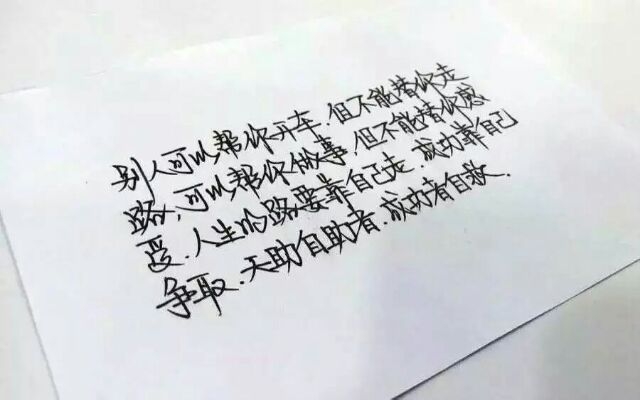 别人可以帮你开车,但不能替你走
路,可以帮你做事,但不能替你感
受.人生的路要靠自己走,成功靠自己
争取.天助自助者,成功者自救.